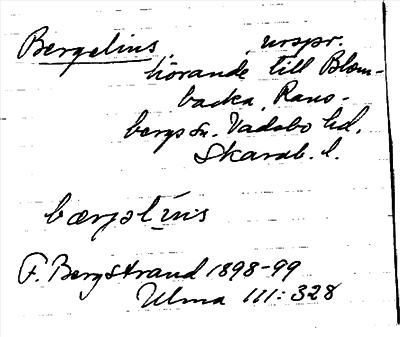 Bergelius, urspr.
hörande till Blom-
backa, Rans-
bergs sn. Vadsbo hd.
Skarab. l.
F. Bergstrand 1898-99
Ulma 111:328